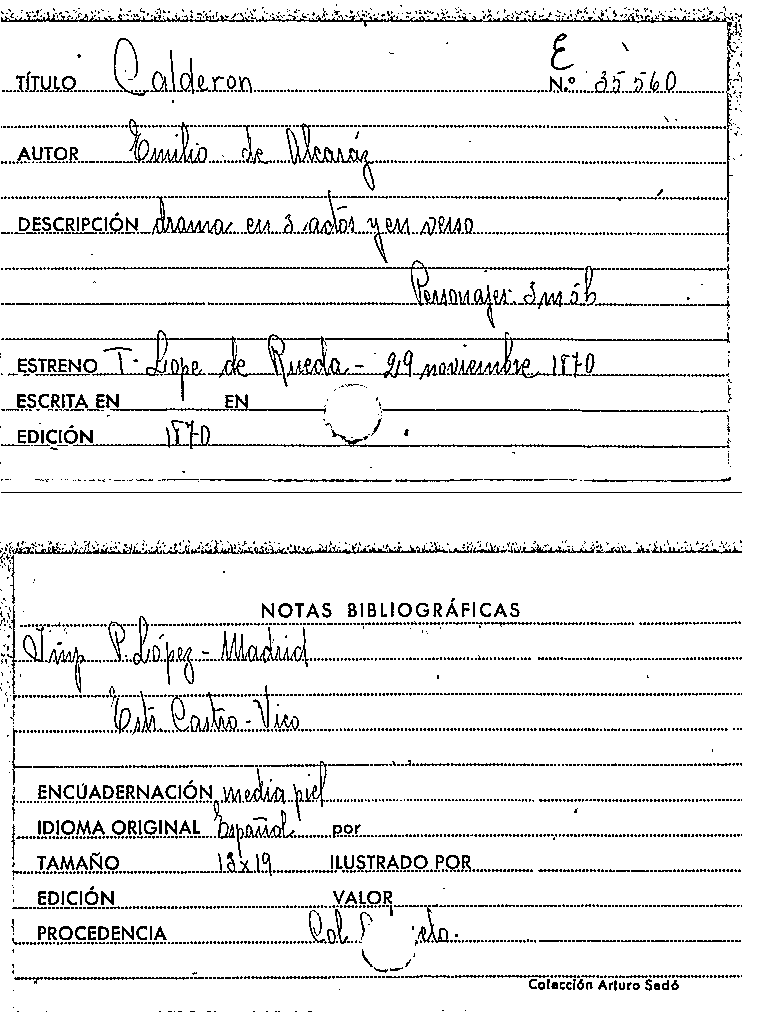 E
TÍTULO Calderon N.º 35560
AUTOR Emilio de Alcaráz
DESCRIPCIÓN drama en 3 actos y en verso
Personajes. 3 m 5 h
ESTRENO T. Lope de Rueda - 29 noviembre 1870
ESCRITA EN EN
EDICIÓN 1870
NOTAS BIBLIOGRÁFICAS
Imp P. López - Madrid
Estr. Castro - Vico
ENCUADERNACIÓN media piel
IDIOMA ORIGINAL Español por
TAMAÑO 13x19 ILUSTRADO POR
EDICIÓN VALOR
PROCEDENCIA Col.
Colección Arturo Sedó